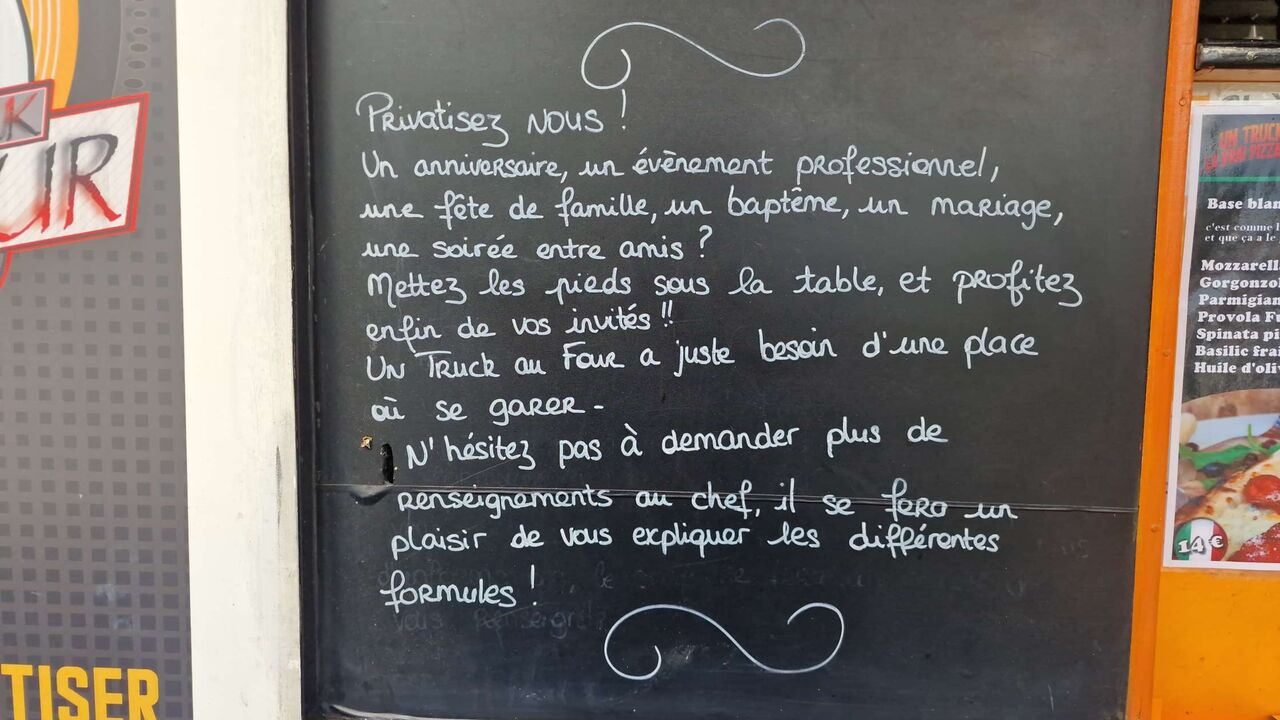 Privatisez NOUS !
Un anniversaire, un évènement professionnel,
une fête de famille, un baptême, un mariage,
une soirée entre amis ?
Mettez les pieds sous la table, et profitez
enfin de vos invités !!
Un Truck au Four a juste besoin d'une place
où se garer -
N'hésitez pas à demander plus de
renseignements au chef, il se fera un
plaisir de vous expliquer les différentes
formules !
UR
TISER
UN TRUCK
Base blan
c'est comme l
et que ça a le
Mozzarell
Gorgonzol
Parmigian
Provola Fu
Spinata pi
Basilic frai
Huile d'oliv
14 €